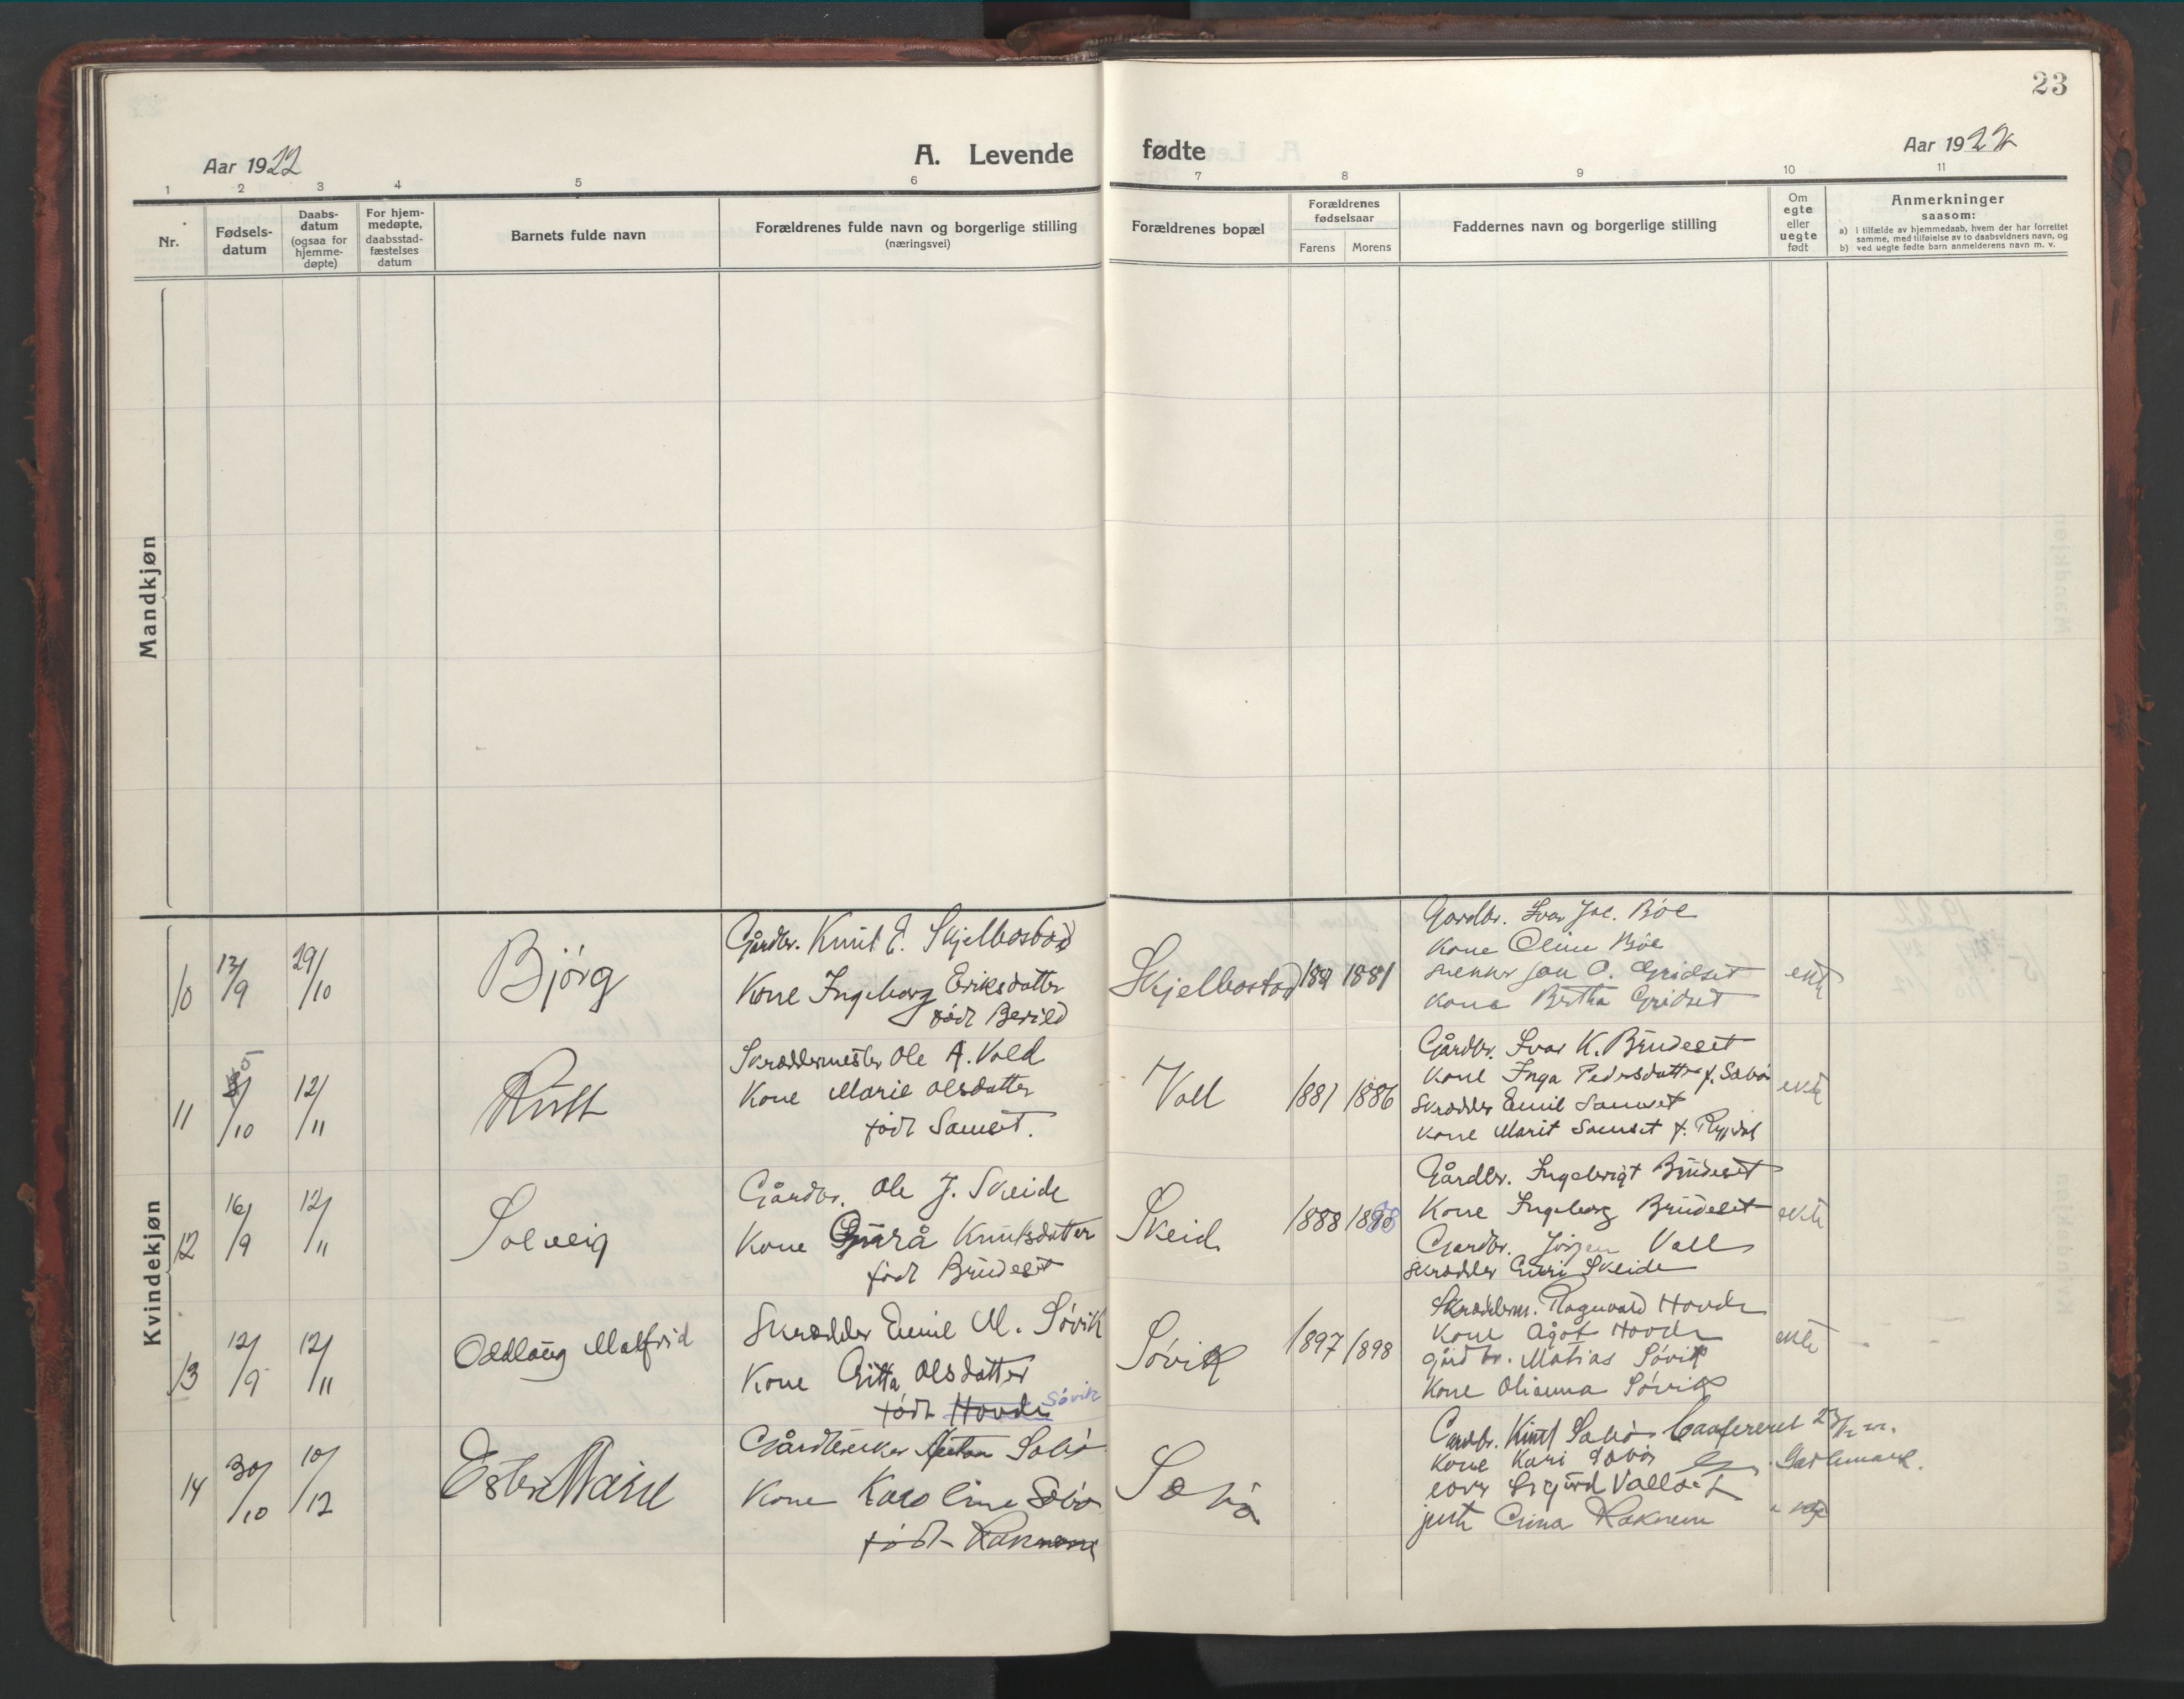 23
Aar 1922
A. Levende fødte
Aar 1922
1 2 3 4 5 6 7 8 9 10 11
Nr.
Fødsels-
datum
Daabs-
datum
(ogsaa for
hjemme-
døpte)
For hjem-
medøpte,
daabsstad-
fæstelses
datum
Barnets fulde navn
Forældrenes fulde navn og borgerlige stilling
(næringsvei)
Forældrenes bopæl
Forældrenes
fødselsaar
Farens Morens
Faddernes navn og borgerlige stilling
Om
egte
eller
uegte
født
Anmerkninger
saasom:
a) i tilfælde av hjemmedaab, hvem der har forrettet
samme, med tilføielse av to daabsvidners navn, og
b) ved uegte fødte barn anmelderens navn m. v.
Mandkjøn
Kvindekjøn
10
13/9
29/10
Bjørg
Gårdbr. Knut E. Skjelbostad
Kone Ingeborg Eriksdatter
født Berild
Skjelbostad
1881
Gardbr. Ivar Joh. Bøe
Kone Oline Bøe
Jon O. Gridset
Kone Bertha Gridset
ekte
11
5/10
12/11
Ruth
Skræddermester Ole A. Vold
Kone Marie Olsdatter
født Samset.
Voll
1881 1886
Gårdbr. Ivar K. Brudeset
Kone Inga Pedersdatter f. Sæbø
Skrædder Emil Samset
Kone Marit Samset f. Rypdal
ekte
12
16/9
12/11
Solveig
Gårdbr. Ole J. Skeide
Kone Gurå Knutsdatter
født Brudeset
Skeid
1888 1898
Gårdbr. Ingebrigt Brudeset
Kone Ingeborg Brudeset
Gardbr. Jørgen Voll
Skrædder Skeide
ekte
13
12/9
12/11
Oddlaug Malfrid
Skrædder Emil M. Søvik
Kone Gitta Olsdatter
født Hovde Søvik
Søvik
1897 1898
Skrædderm. Ragnvald Hovde
Kone Ågot Hovde
gårdbr. Matias Søvik
Kone Olianna Søvik
ekte
14
30/10
10/12
Ester Marie
Gårdbruker Anton Sæbø
Kone Karoline Sæbø
født Raknem
Sæbø
Gardbr. Knut Sæbø
Kone Kari Sæbø
Sigurd Vallset
Raknem